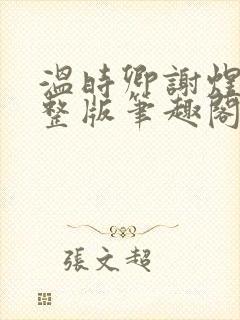 溫時卿謝煌
整版筆趣閣
張文超